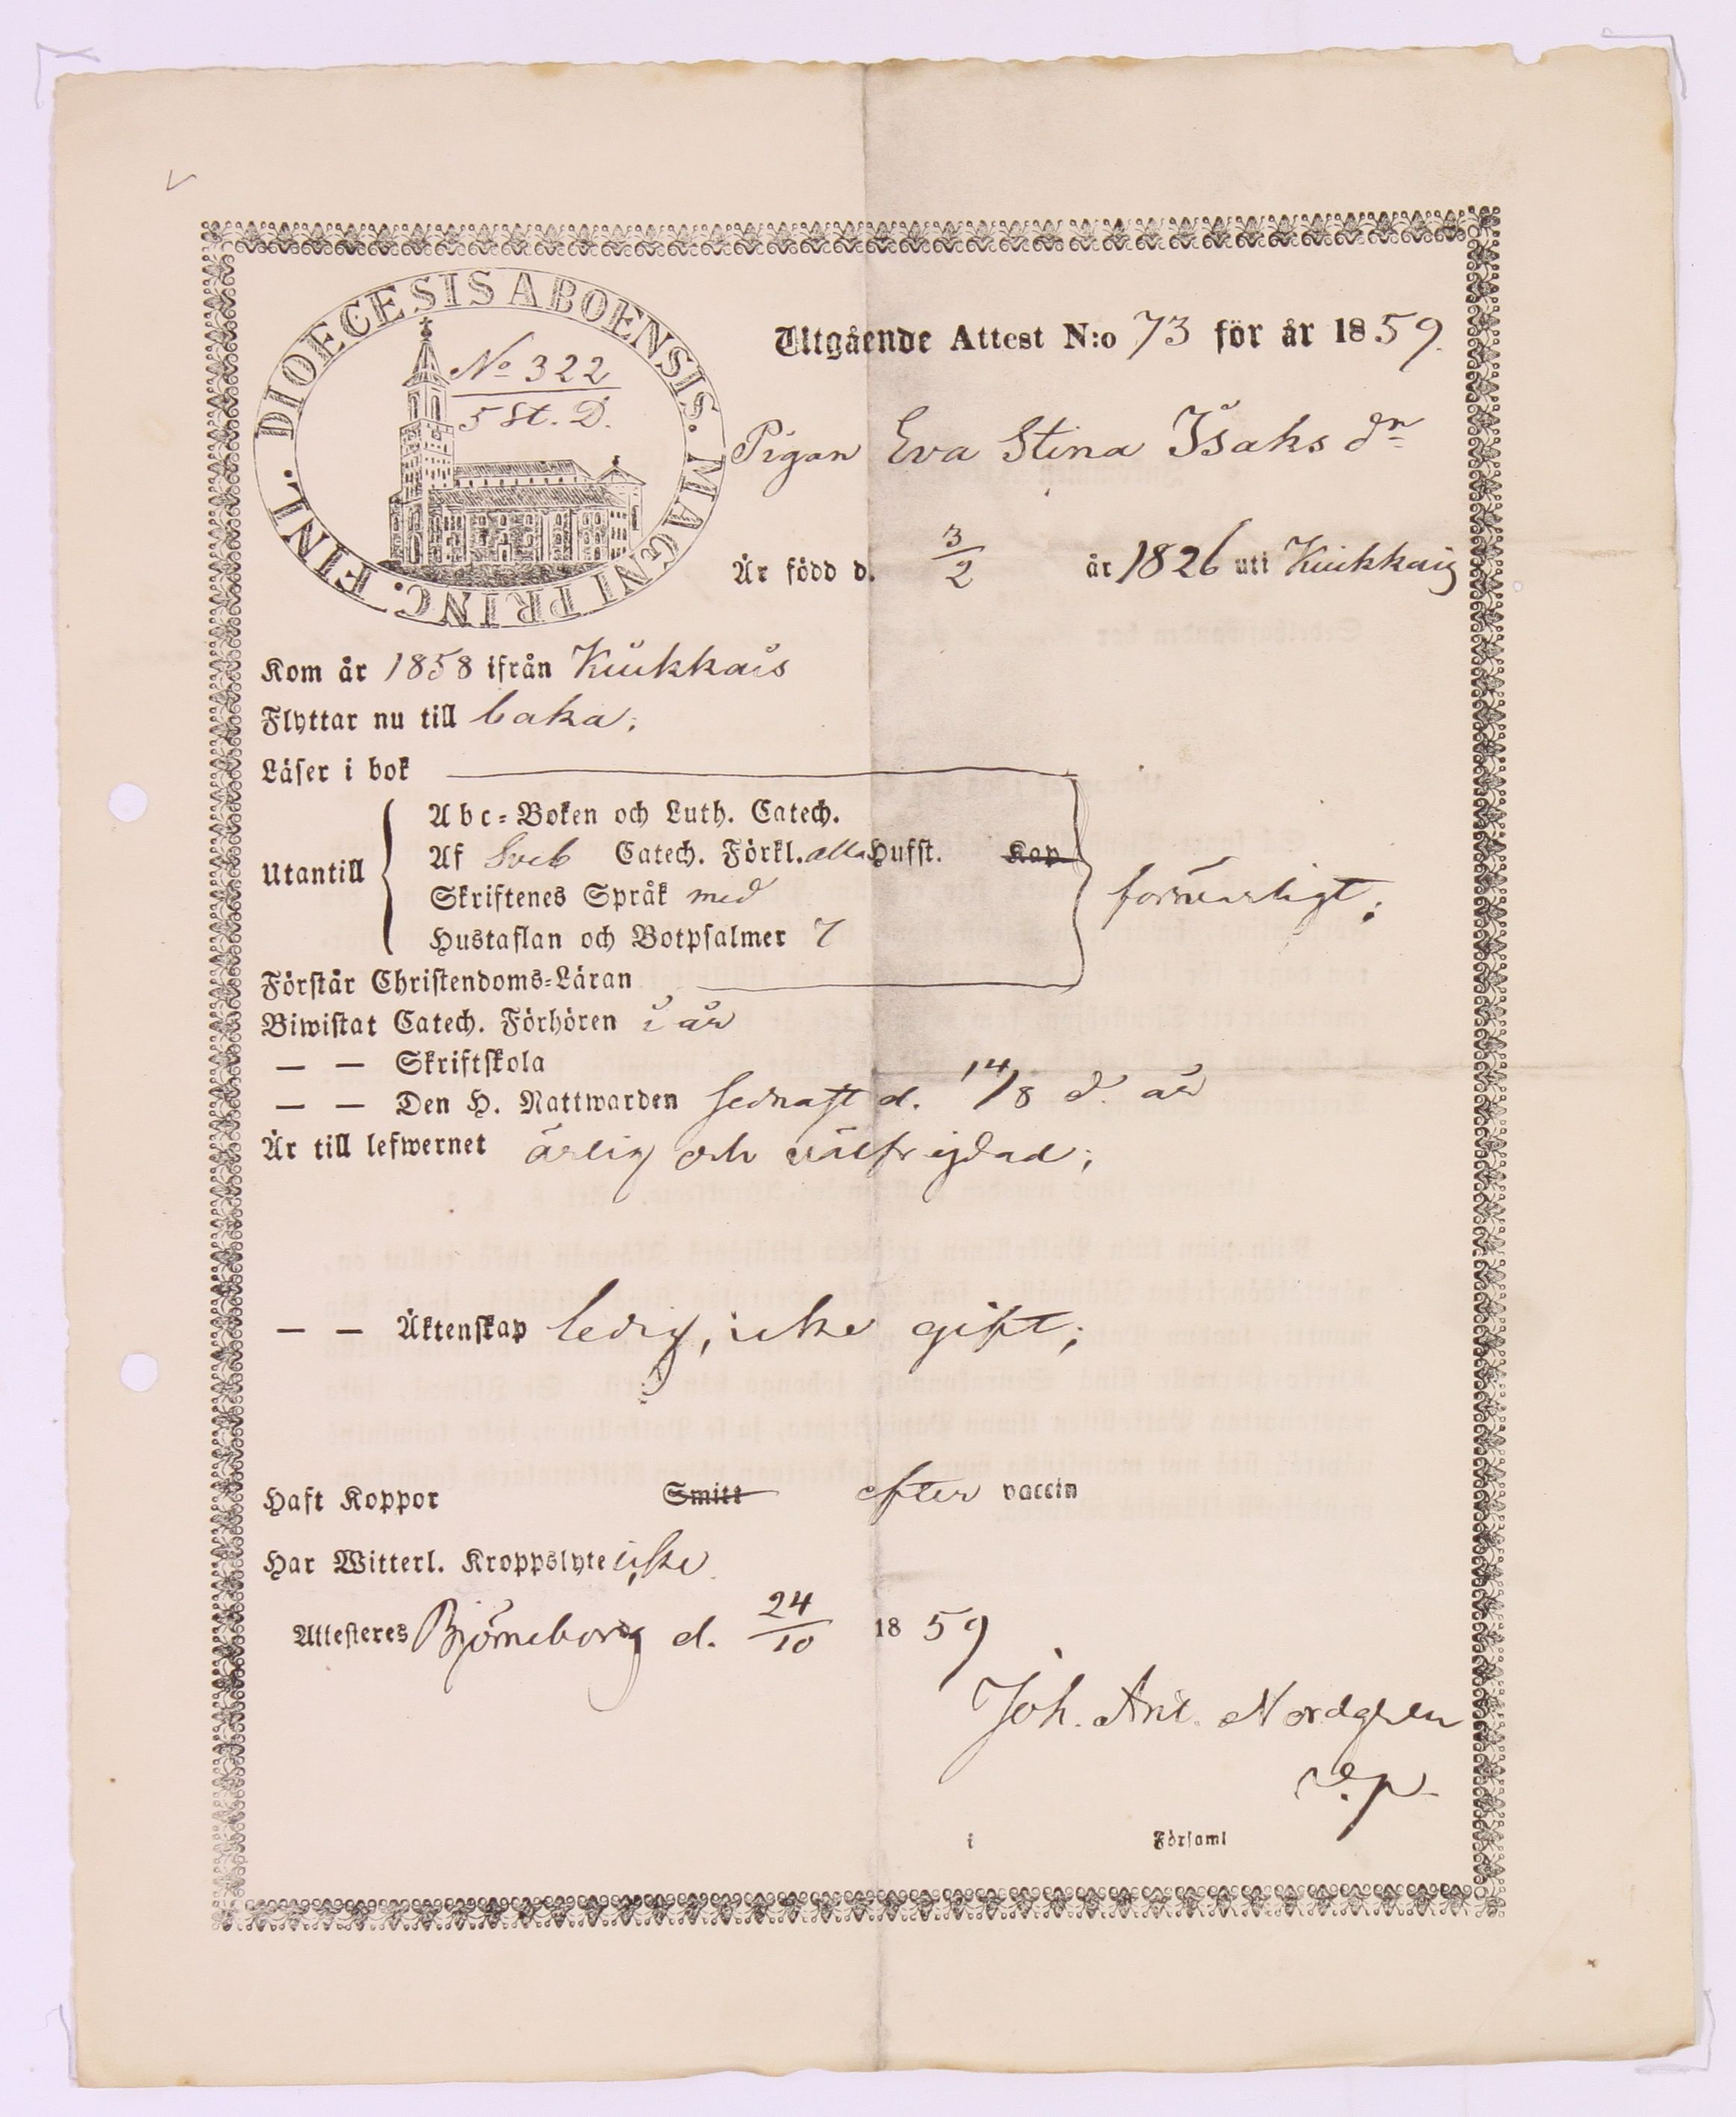 DIOECESIS ABOENSIS. MAGNI PRINC. FINL.
No 322
5 St. D.
Utgående Attest N:o 73 för år 1859.
Pigan Eva Stina Isaks dr
Är född d. 3/2 år 1826 uti Kiukkais
Kom år 1858 ifrån Kiukkais
Flyttar nu till baka;
Läser i bok
Utantill
Abc-Boken och Luth. Catech.
Af Sveb Catech. Förkl. alla Hufst. Kap
Skriftenes Språk med
Hustaflan och Botpsalmer 7
försvarligt;
Förstår Christendoms-Läran
Biwistat Catech. Förhören i år
— — Skriftskola
— — Den H. Nattwarden sednast d. 14/8 d. år
Är till lefwernet ärlig och välfrejdad;
— — Äktenskap ledig, icke gift;
Haft Koppor Smitt efter vaccin
Har Witterl. Kroppslyte icke
Attesteres Björneborg d. 24/10 1859
Joh. Ant. Nordgren
v.p.
i Församl